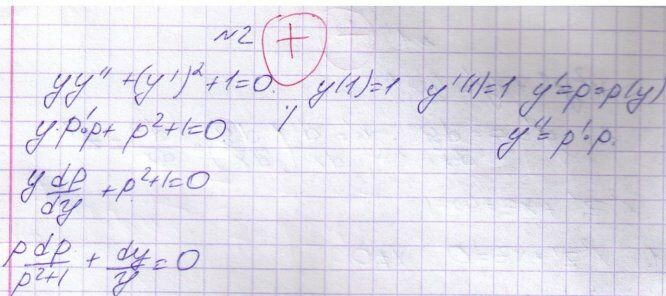 №2 +
yy'' + (y')² + 1 = 0. y(1)=1 y'(1)=1 y'=p=p(y)
y·p'·p + p² + 1 = 0 y''=p'·p.
y dp/dy + p² + 1 = 0
p dp/(p²+1) + dy/y = 0